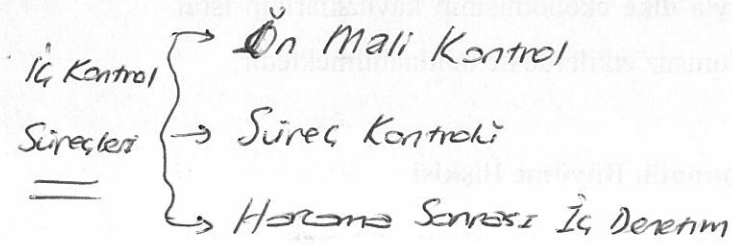 İç Kontrol
Süreçleri
Ön Mali Kontrol
Süreç Kontrolü
Harcama Sonrası İç Denetim